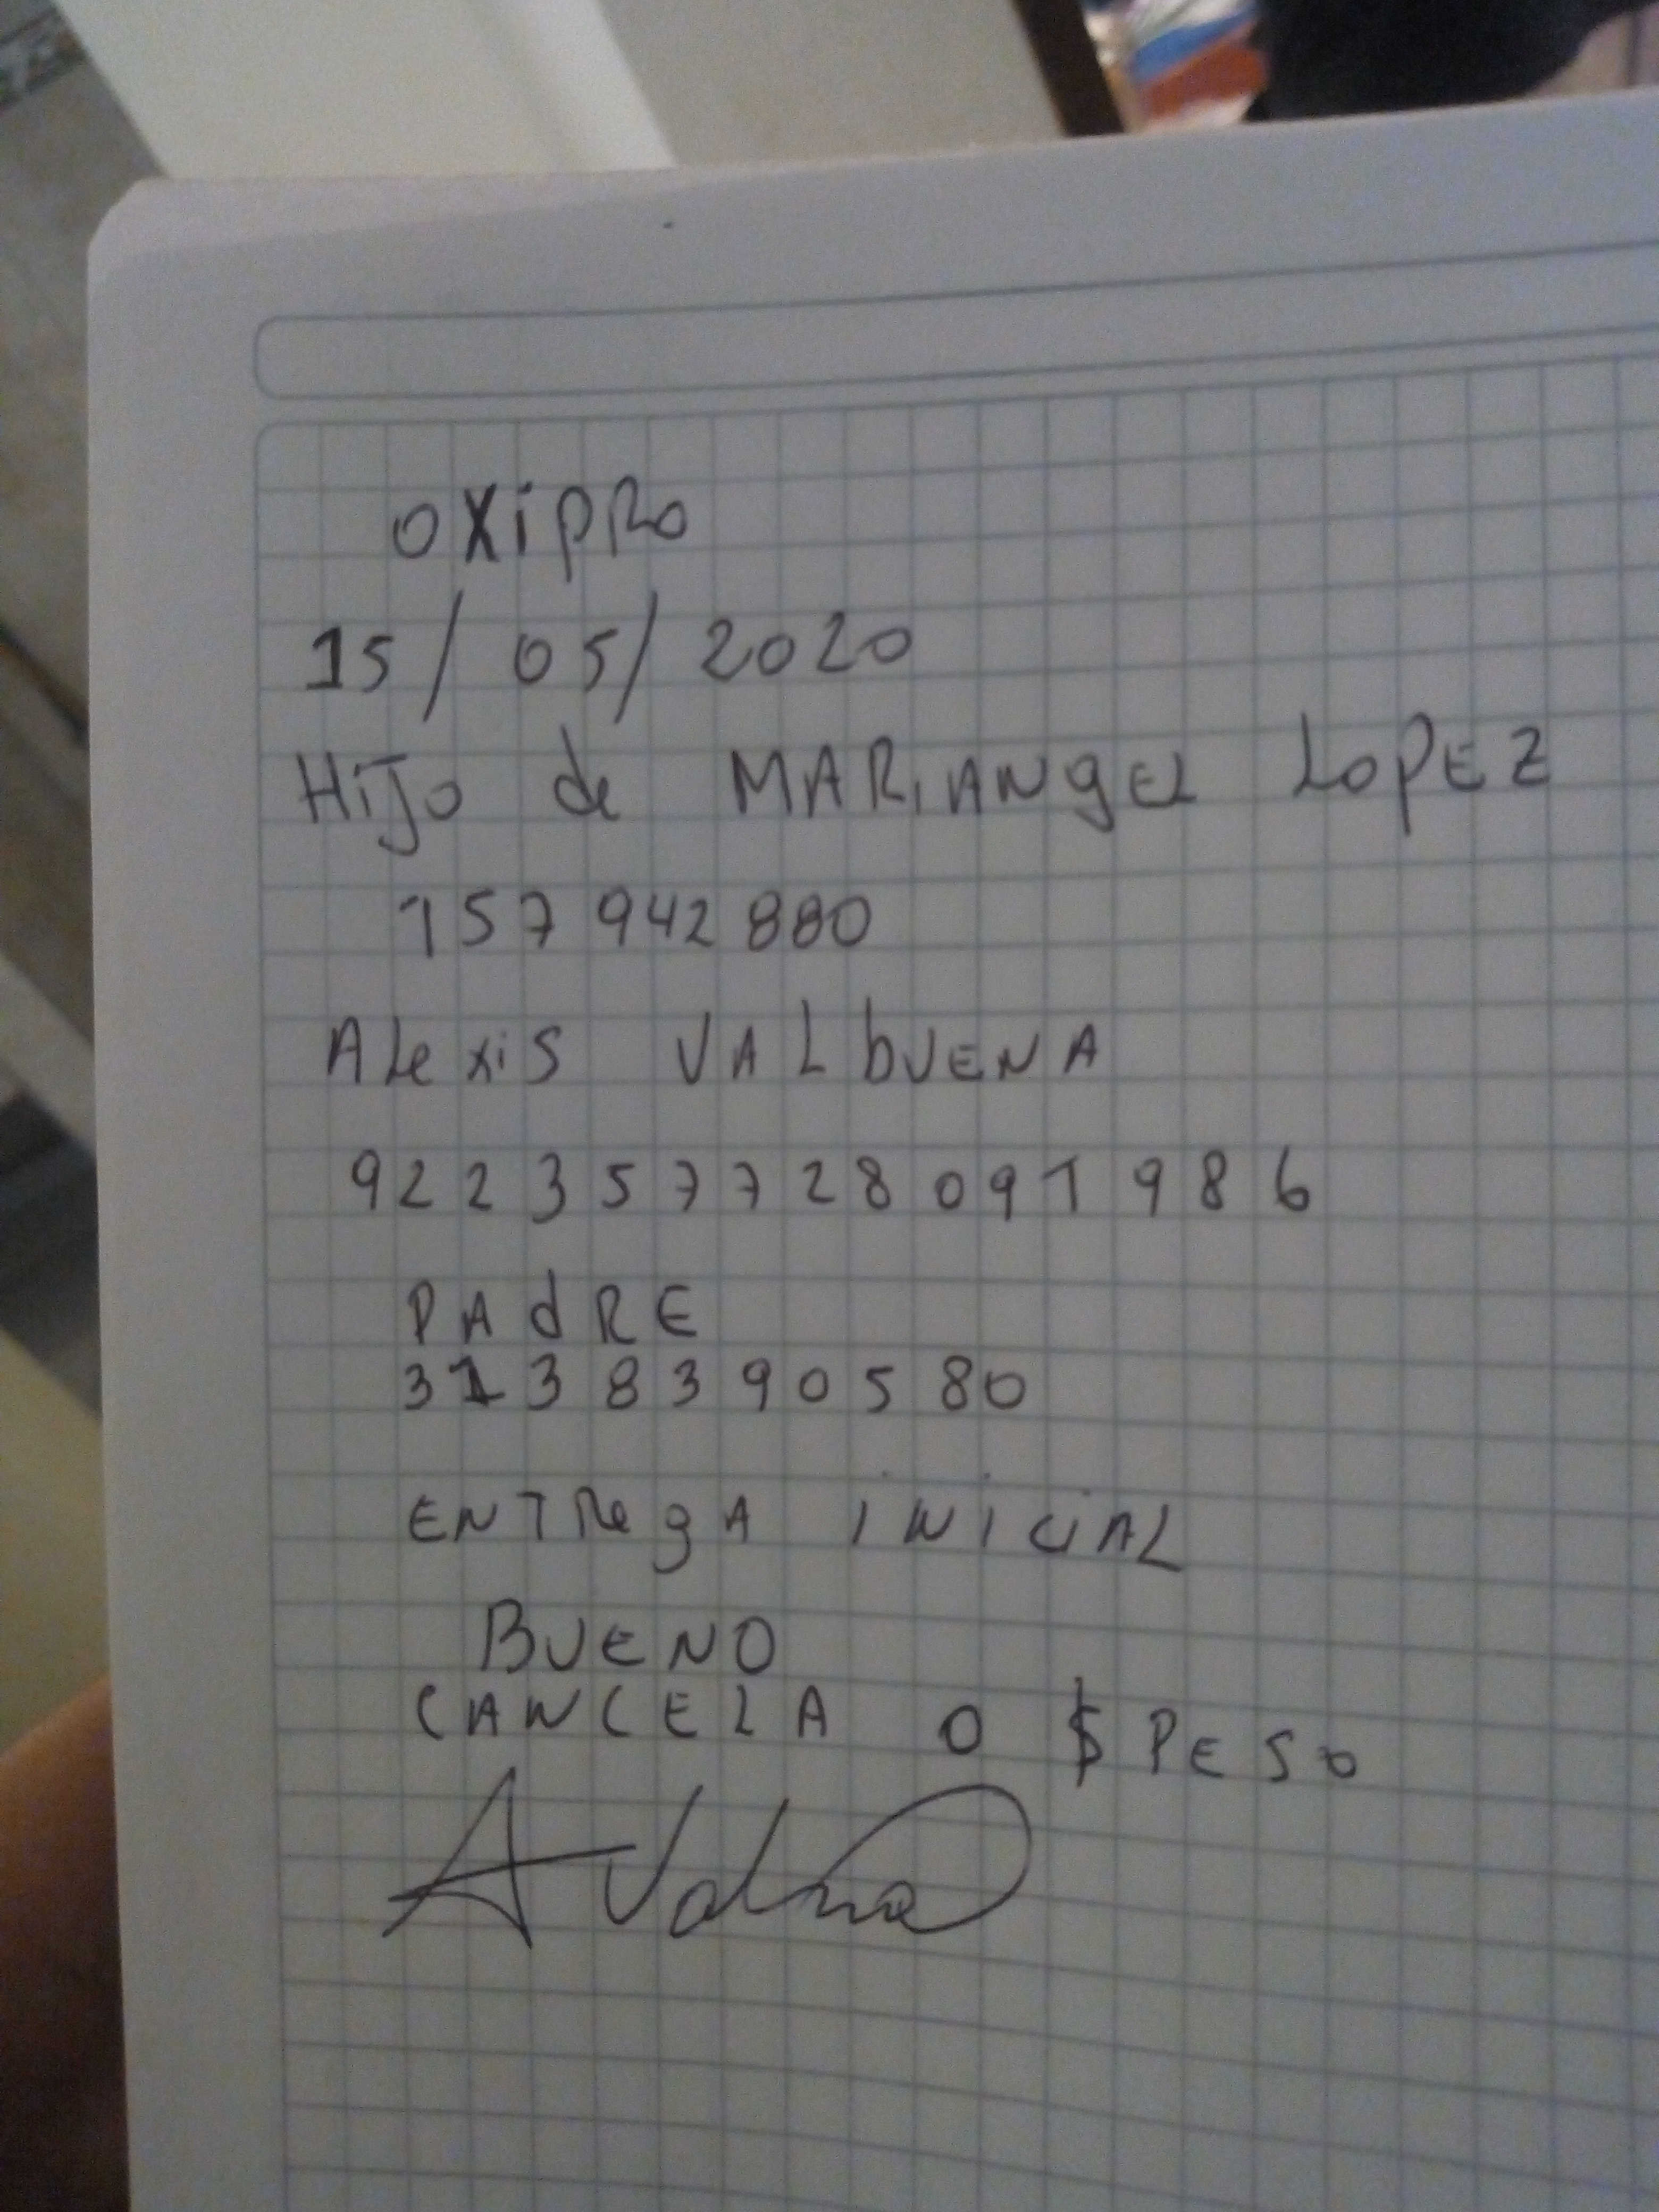 OXiPRo
15/05/2020
HiJo de MARiANgEL LoPEZ
157 942 880
ALexiS VALbUENA
922357728091986
PAdRE
3138390580
ENTRegA iNiCiAL
BUENO
CANCELA 0 $ PESo